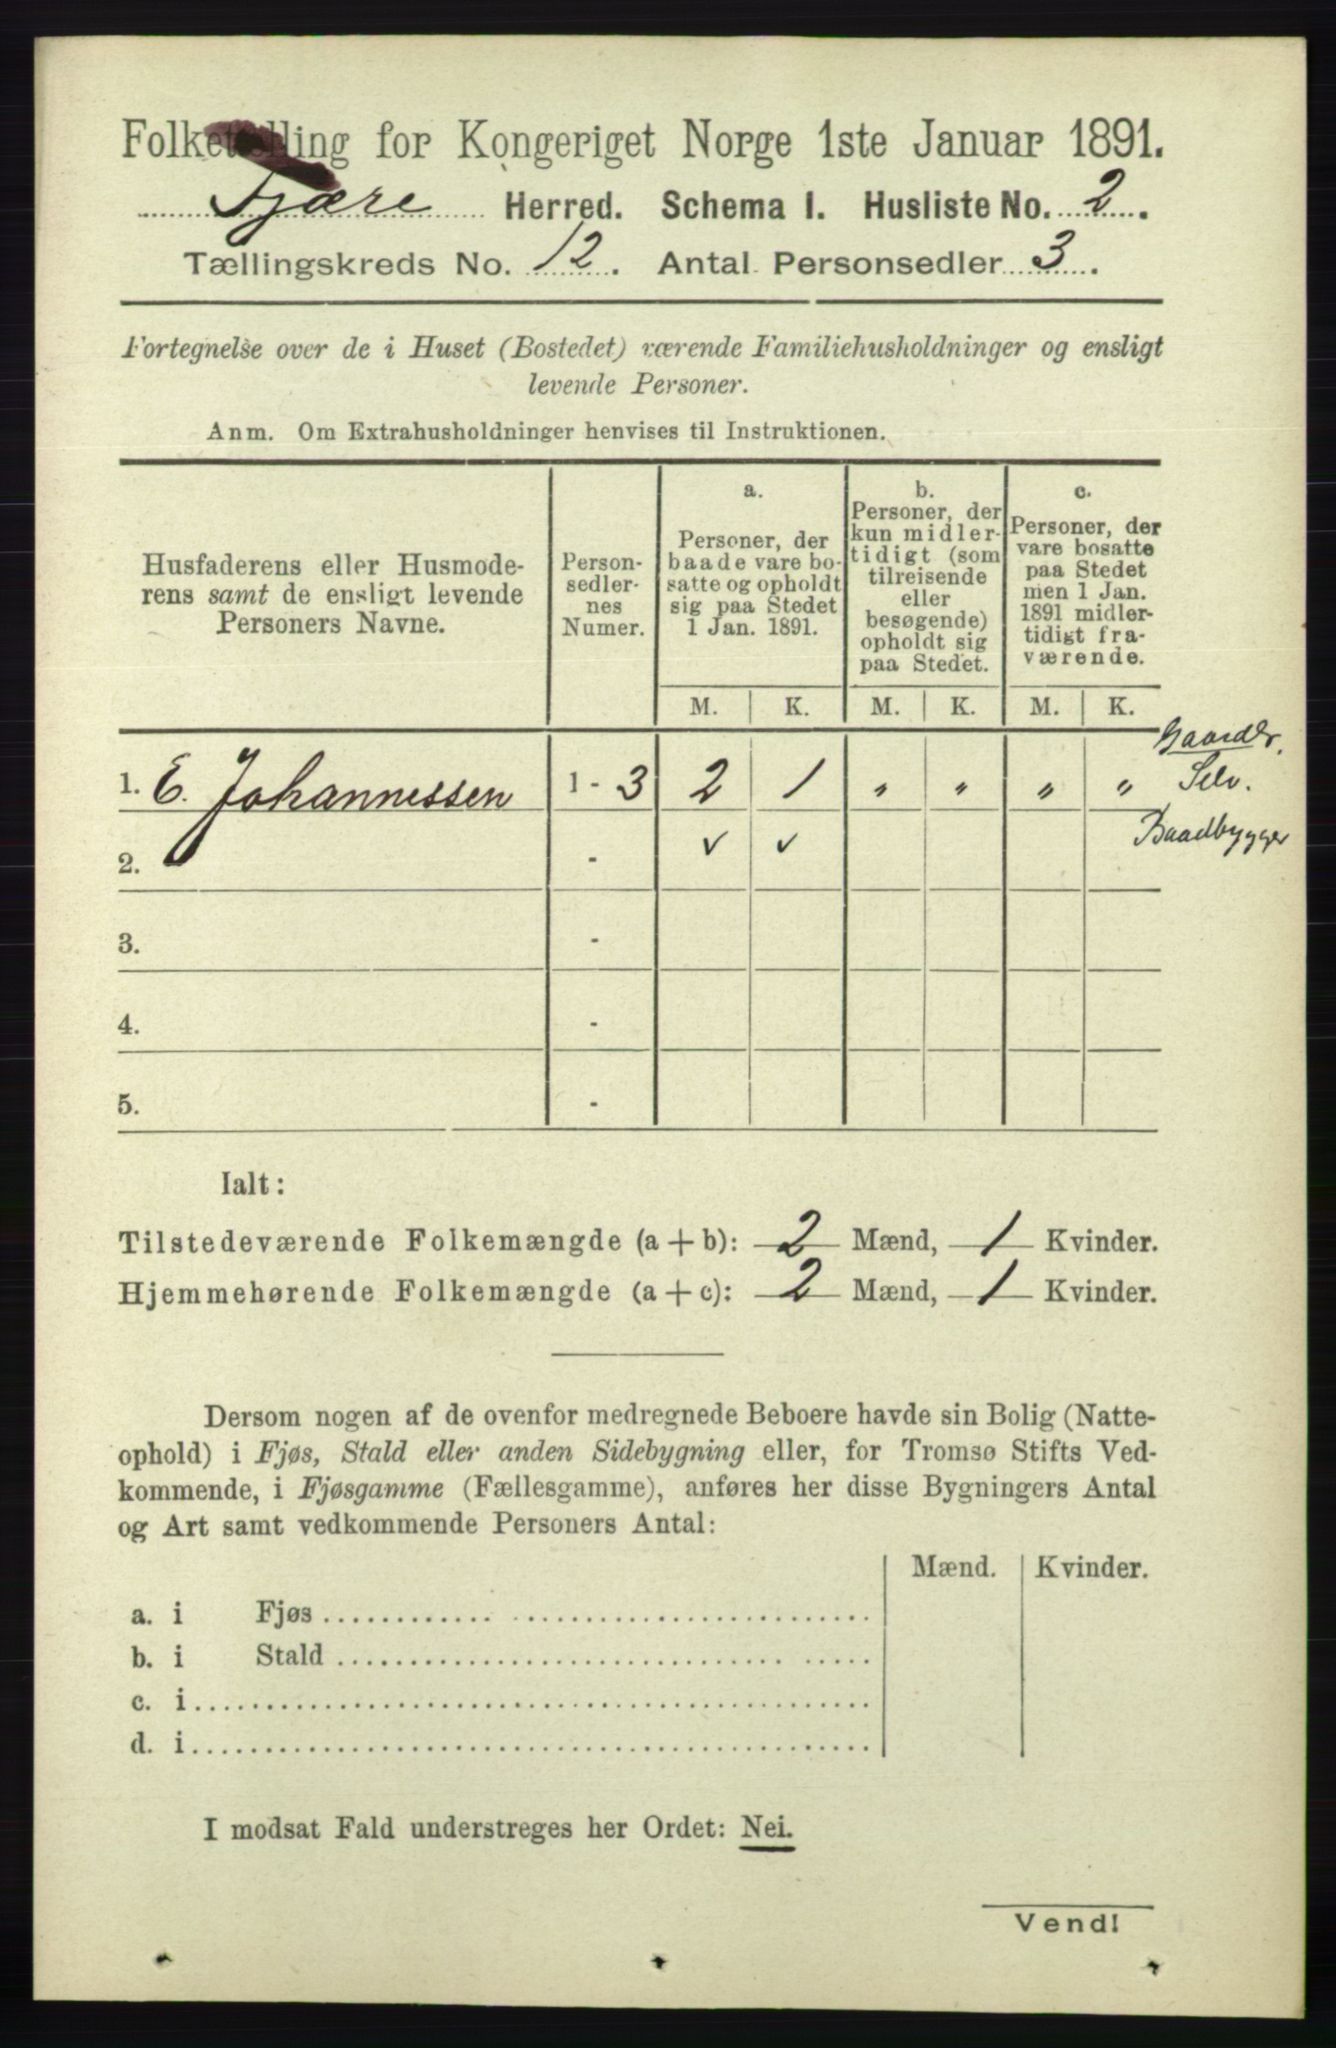 Folketælling for Kongeriget Norge 1ste Januar 1891.
Fjære Herred. Schema I. Husliste No. 2.
Tællingskreds No. 12. Antal Personsedler 3.
Fortegnelse over de i Huset (Bostedet) værende Familiehusholdninger og ensligt
levende Personer.
Anm. Om Extrahusholdninger henvises til Instruktionen.
Husfaderens eller Husmode-
rens samt de ensligt levende
Personers Navne.
Person-
sedler-
nes
Numer.
a.
Personer, der
baade vare bo-
satte og opholdt
sig paa Stedet
1 Jan. 1891.
b.
Personer, der
kun midler-
tidigt (som
tilreisende
eller
besøgende)
opholdt sig
paa Stedet.
c.
Personer, der
vare bosatte
paa Stedet
men 1 Jan.
1891 midler-
tidigt fra-
værende.
M. K. M. K. M. K.
Gaardbr.
1. E. Johannessen 1 - 3 2 1 " " " " Selv.
Baadbygger
2. - ✓ ✓
3. -
4. -
5. -
Ialt:
Tilstedeværende Folkemængde (a + b): 2 Mænd, 1 Kvinder.
Hjemmehørende Folkemængde (a + c): 2 Mænd, 1 Kvinder.
Dersom nogen af de ovenfor medregnede Beboere havde sin Bolig (Natte-
ophold) i Fjøs, Stald eller anden Sidebygning eller, for Tromsø Stifts Ved-
kommende, i Fjøsgamme (Fællesgamme), anføres her disse Bygningers Antal
og Art samt vedkommende Personers Antal:
Mænd. Kvinder.
a. i Fjøs
b. i Stald
c. i
d. i
I modsat Fald understreges her Ordet: Nei.
Vend!